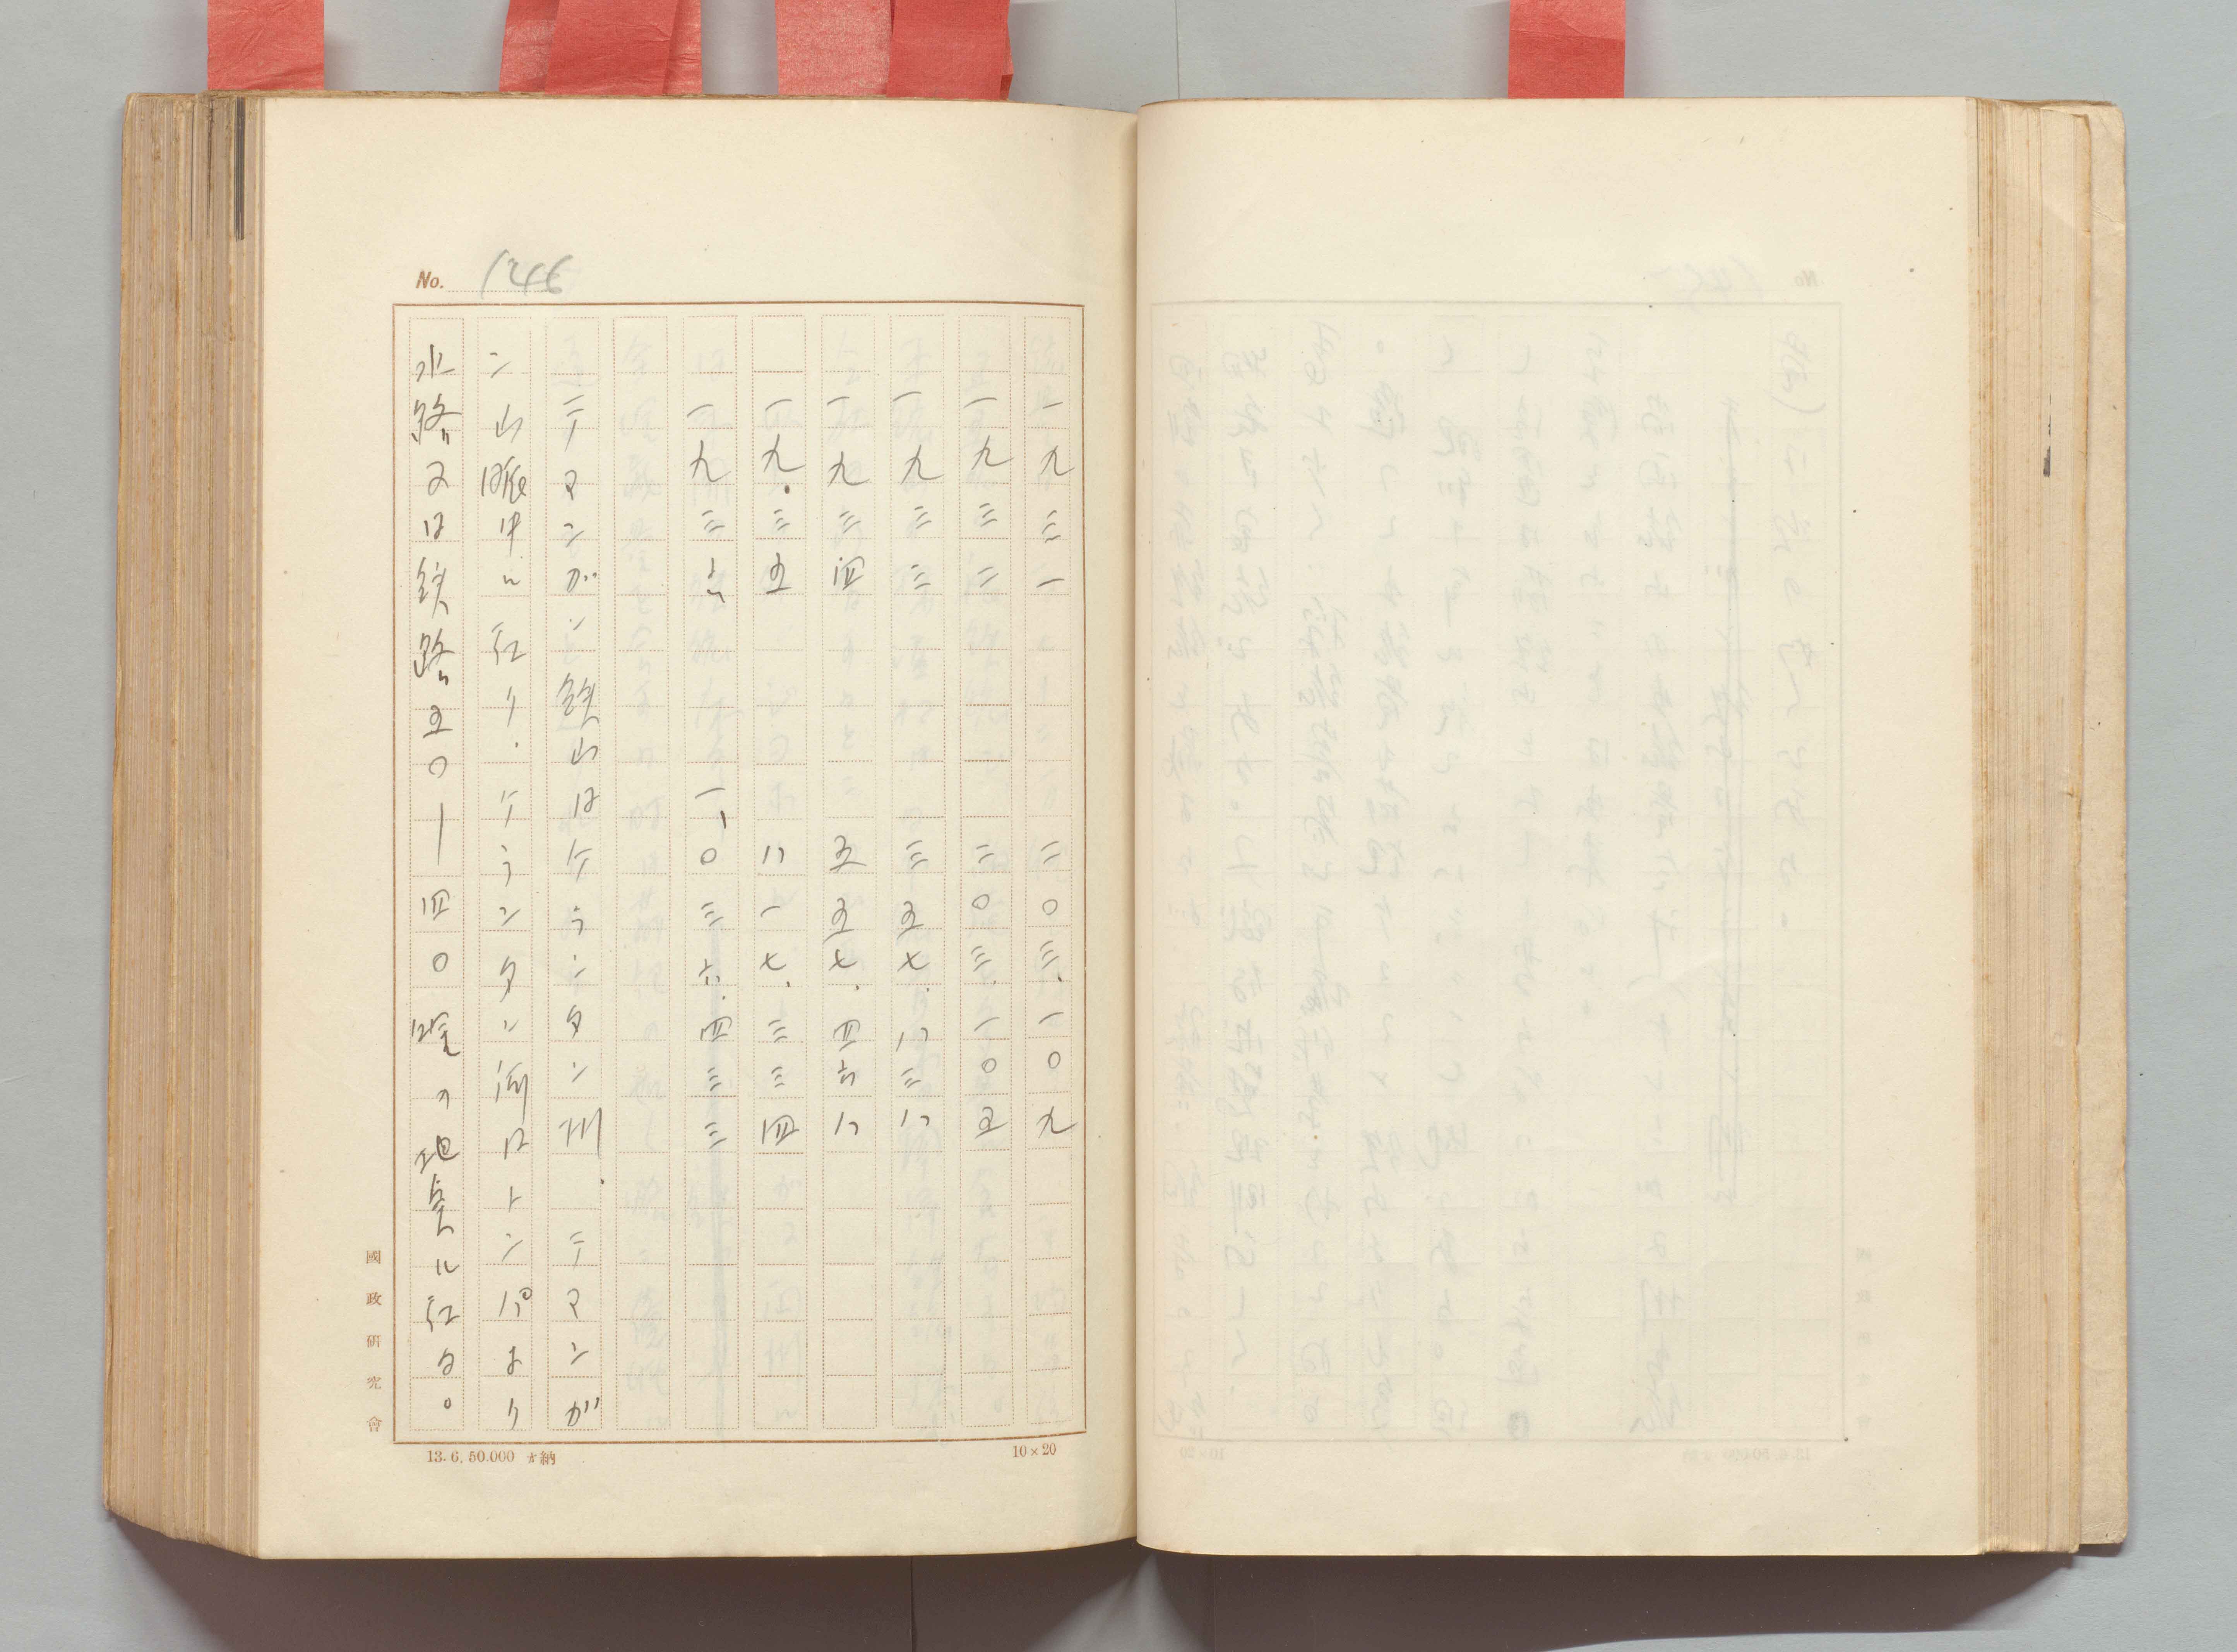 No. 146
一九三一 二〇三.一〇九
一九三二 二〇三.一〇五
一九三三 三五七.八三八
一九三四 五五七.四六八
一九三五 八一七.三三四
一九三六 一,〇三六.四三三
テマンガン鉄山はケランタン州、テマンガ
ン山脈中に在り、ケランタン河口トンパより
水路又は鉄路五〇—四〇哩の地点に在る。
國政研究會
13.6.50.000 納
10×20